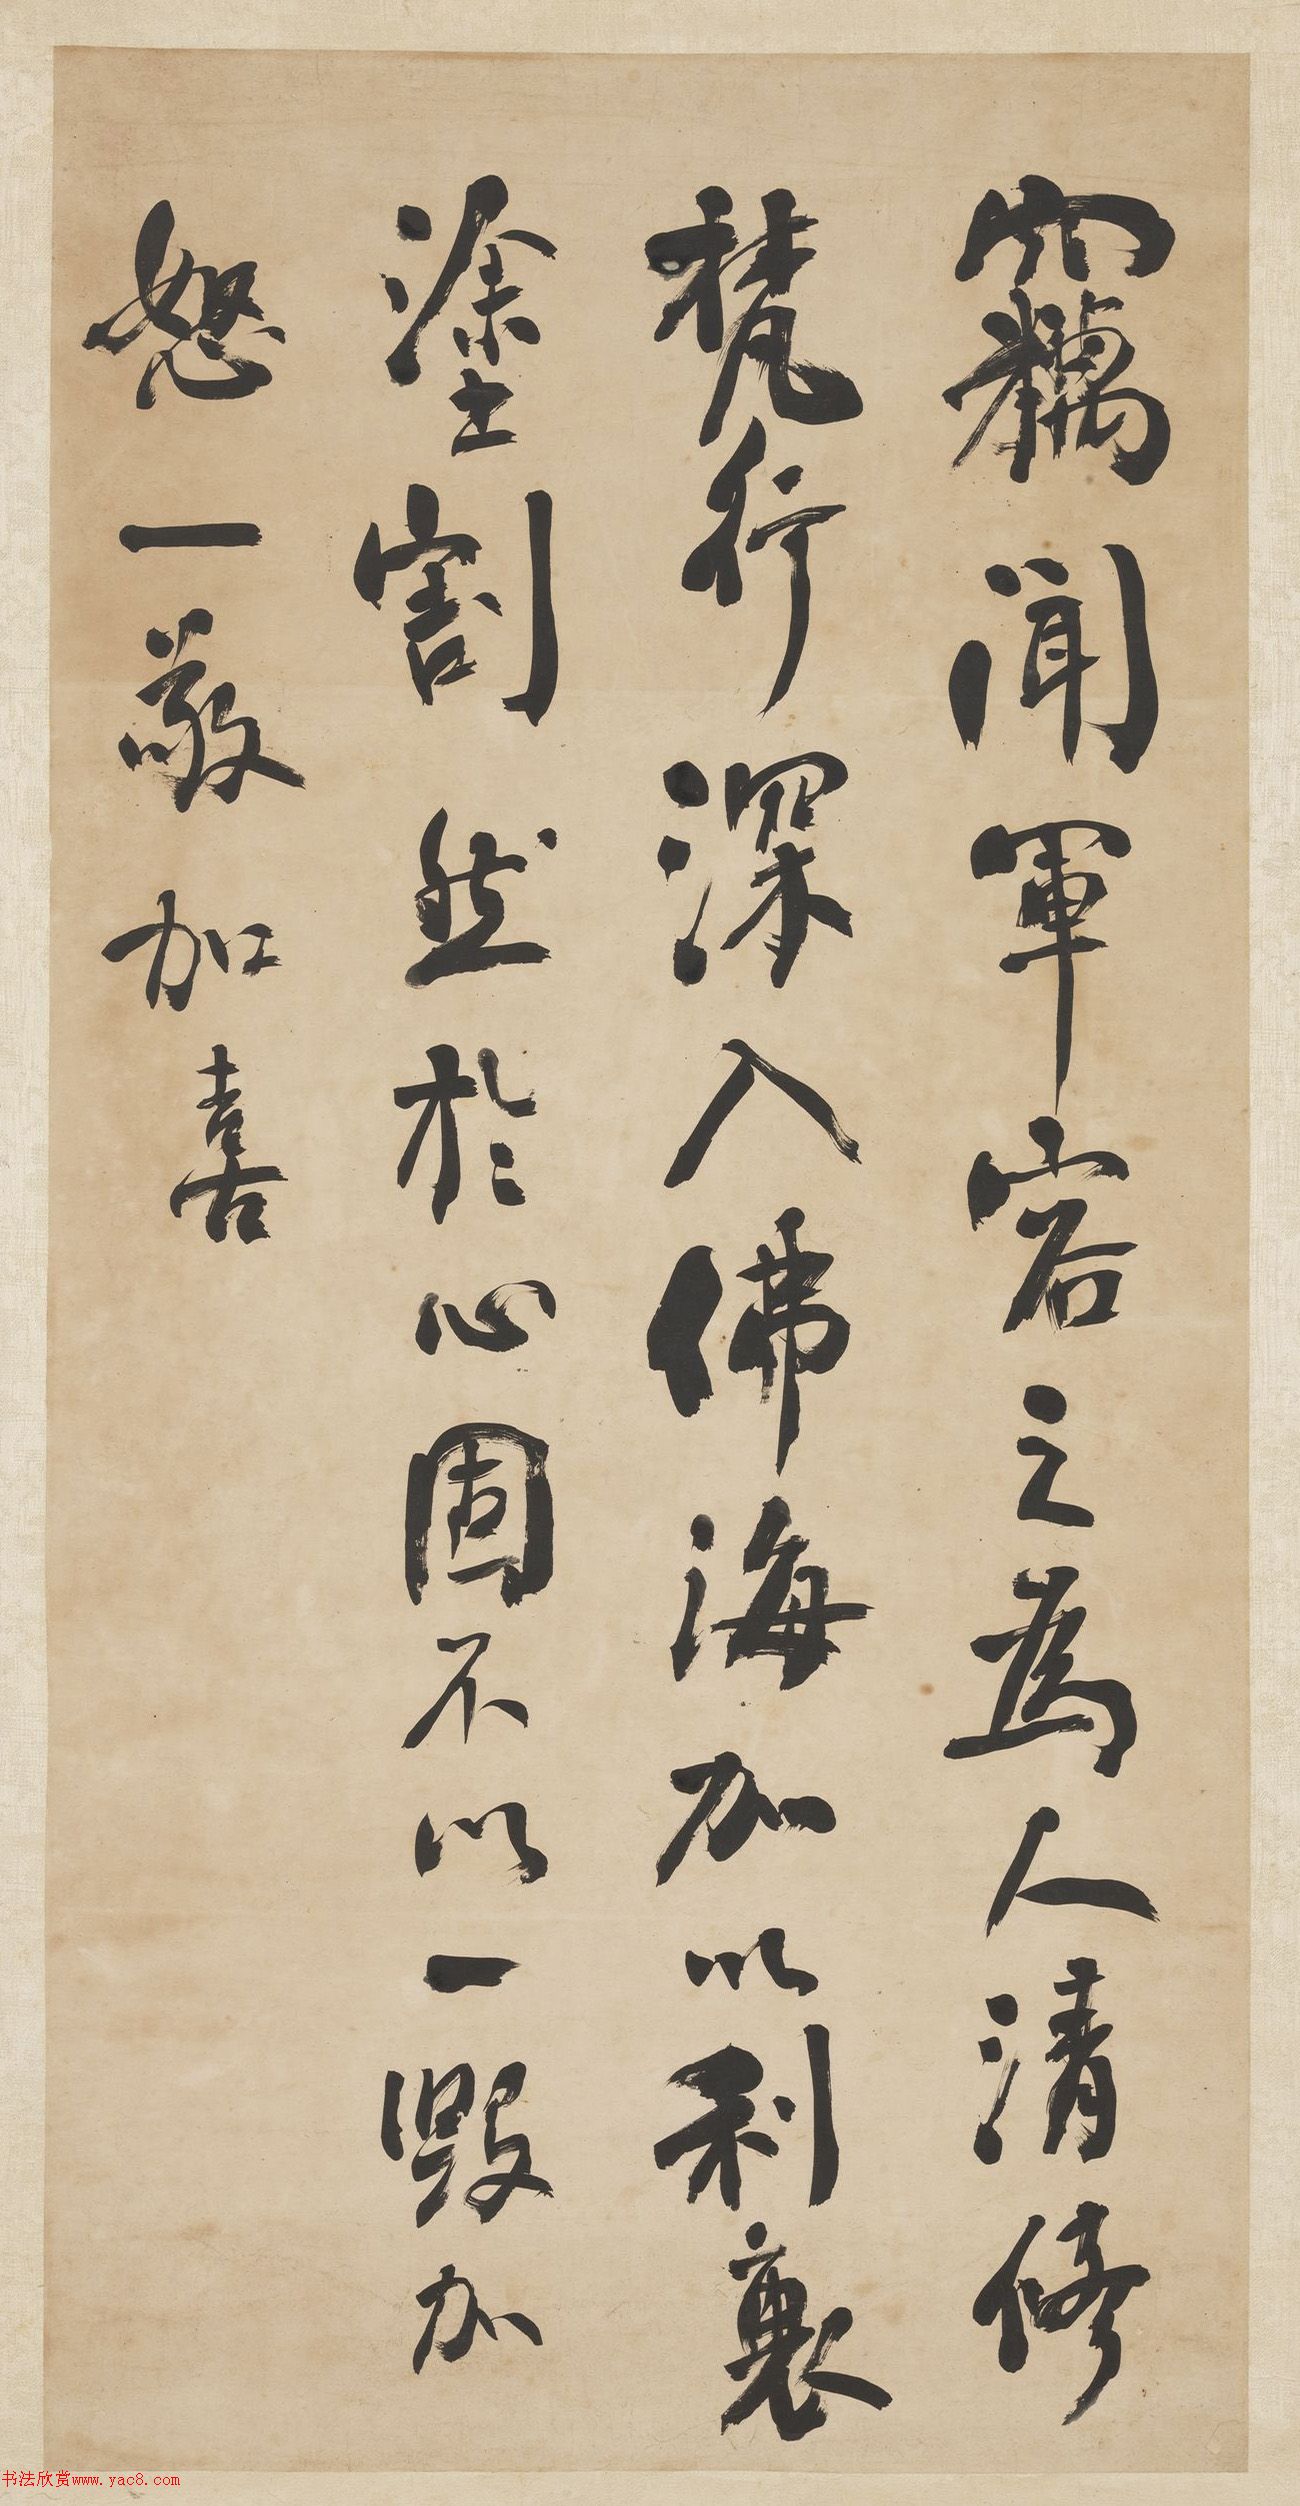 竊聞軍容之為人清修
梵行深入佛海加以利裹
塗割然於心固不以一毀加
怒一敬加喜
书法欣赏www.yac8.com